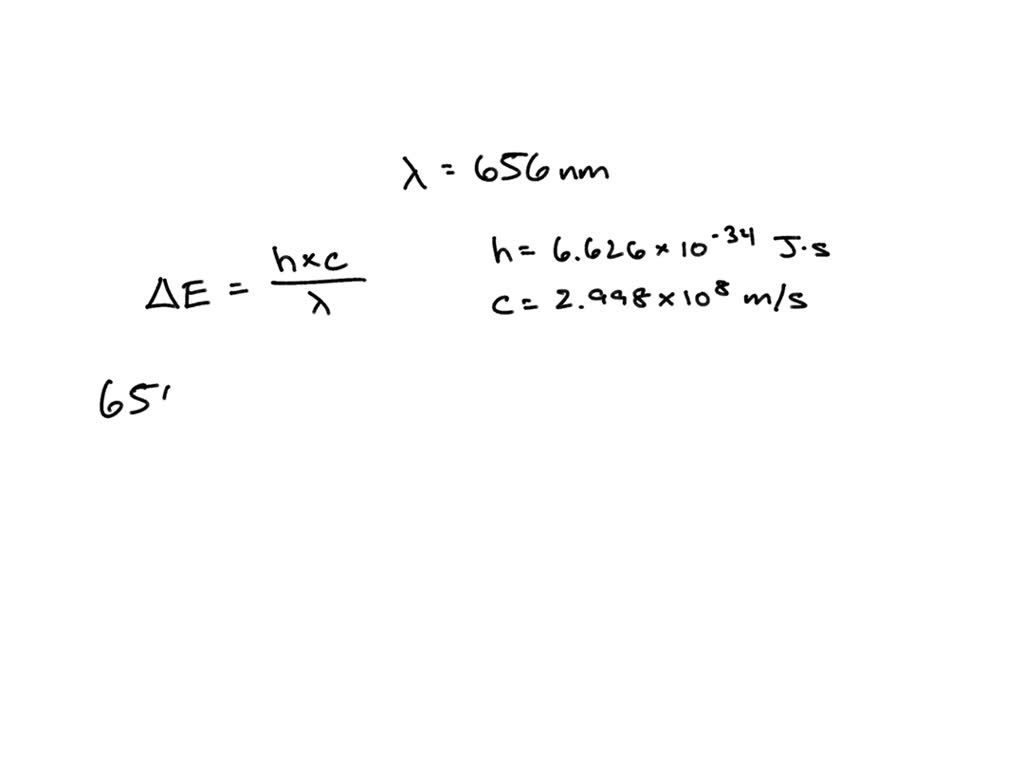 λ = 656 nm
ΔE = h×c / λ
h = 6.626 × 10⁻³⁴ J·s
c = 2.998 × 10⁸ m/s
65